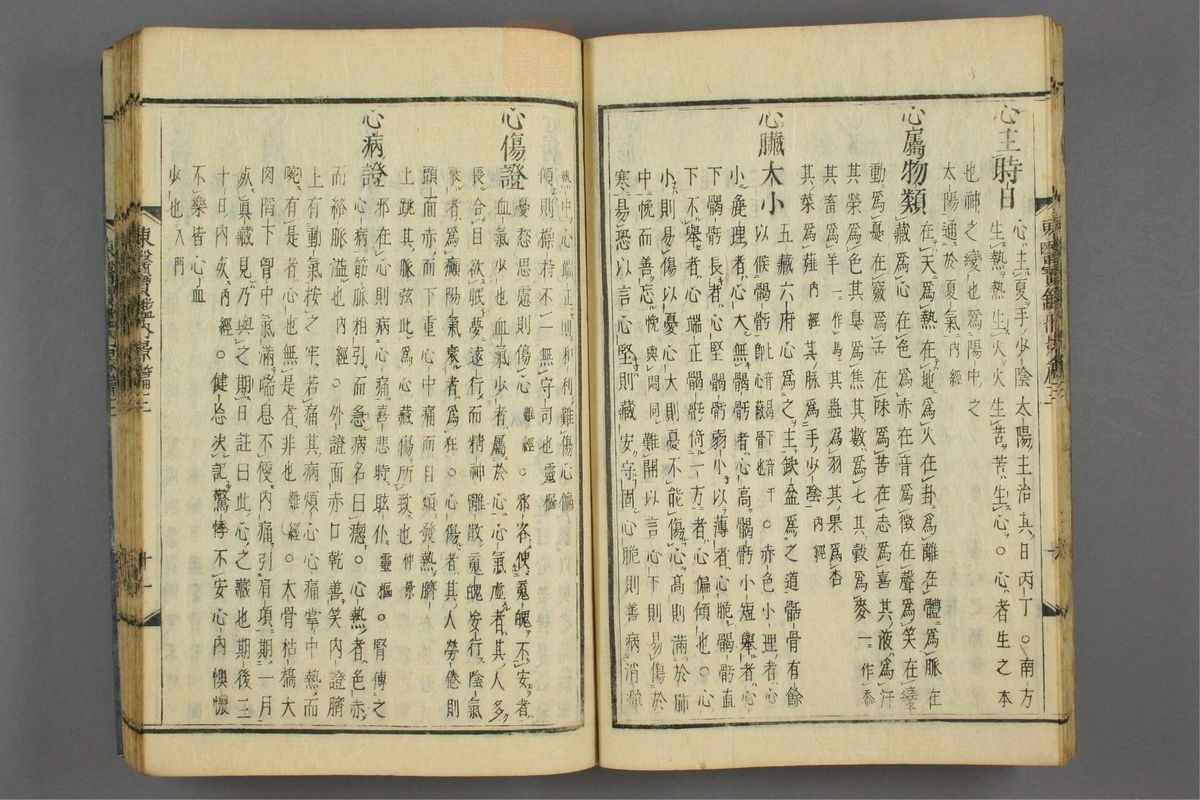 心主時日
心主夏手少陰太陽主治其日丙丁○南方
生熱熱生火火生苦苦生心○心者生之本
也神之變也爲陽中之
太陽通於夏氣內經
心屬物類
在天爲熱在地爲火在卦爲離在體爲脈在
藏爲心在色爲赤在音爲徵在聲爲笑在變
動爲憂在竅爲舌在味爲苦在志爲喜其液爲汗
其榮爲色其臭爲焦其數爲七其穀爲麥一作黍
其畜爲羊一作馬其蟲爲羽其果爲杏
其菜爲薤內經其脈爲手少陰內經
心臟大小
五藏六府心爲之主缺盆爲之道骺骨有餘
以候䯏骬卽心蔽骨也○赤色小理者心
小麄理者心大無䯏骬者心高䯏骬小短舉者心
下䯏骬長者心堅䯏骬弱小以薄者心脆䯏骬直
下不舉者心端正䯏骬倚一方者心偏傾也○心
小則易傷以憂心大則憂不能傷心高則滿於肺
中悗而善忘悗與悶同難開以言心下則易傷於
寒易恐以言心堅則藏安守固心脆則善病消癉
熱中心端正則和利難傷心偏
傾則操持不一無守司也靈樞
心傷證
憂愁思慮則傷心難經○邪客使魂魄不安者
血氣少也血氣少者屬於心心氣虛者其人多
畏合目欲眠夢遠行而精神離散魂魄妄行陰氣
衰者爲癲陽氣衰者爲狂○心傷者其人勞倦則
頭面赤而下重心中痛而自煩發熱臍
上跳其脈弦此爲心藏傷所致也仲景
心病證
邪在心則病心痛喜悲時眩仆靈樞○腎傳之
心病筋脈相引而急病名曰瘛○心熱者色赤
而絡脈溢也內經○外證面赤口乾善笑內證臍
上有動氣按之牢若痛其病煩心心痛掌中熱而
啘有是者心也無是者非也難經○大骨枯槁大
肉陷下胷中氣滿喘息不便內痛引肩項期一月
死眞藏見乃與之期日註曰此心之藏也期後三
十日內死內經○健忘失記驚悸不安心內懊憹
不樂皆心血
少也入門
東醫寶鑑外景篇
十一